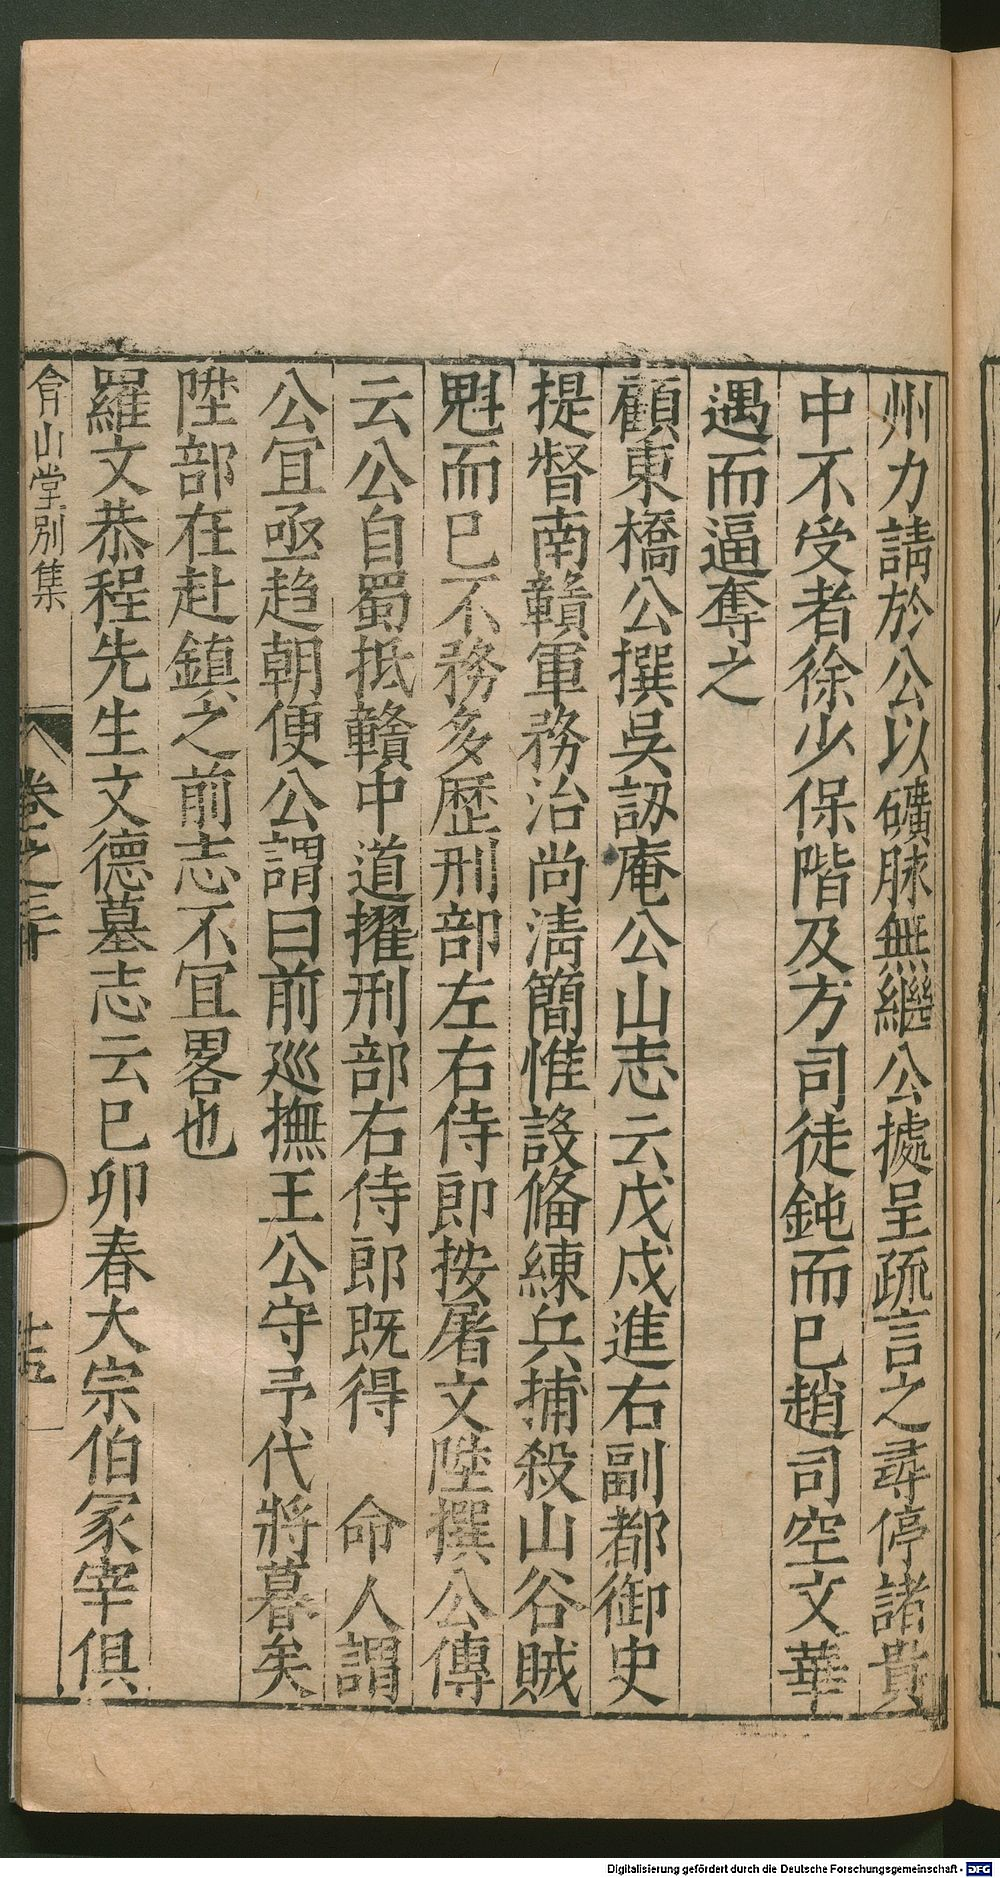 州力請於公以礦脉無繼公據呈疏言之尋停諸貴
中不受者徐少保階及方司徒鈍而已趙司空文華
遇而逼奪之
顧東橋公撰吳訒庵公山志云戊戌進右副都御史
提督南贛軍務治尚清簡惟設備練兵捕殺山谷賊
魁而已不務多歷刑部左右侍郎按屠文陞撰公傳
云公自蜀抵贛中道擢刑部右侍郎既得 命人謂
公宜亟趨朝便公謂曰前廵撫王公守予代將暮矣
陞部在赴鎮之前志不宜畧也
羅文恭程先生文德墓志云己卯春大宗伯冢宰俱
弇山堂別集
卷之三十
Digitalisierung gefördert durch die Deutsche Forschungsgemeinschaft - DFG